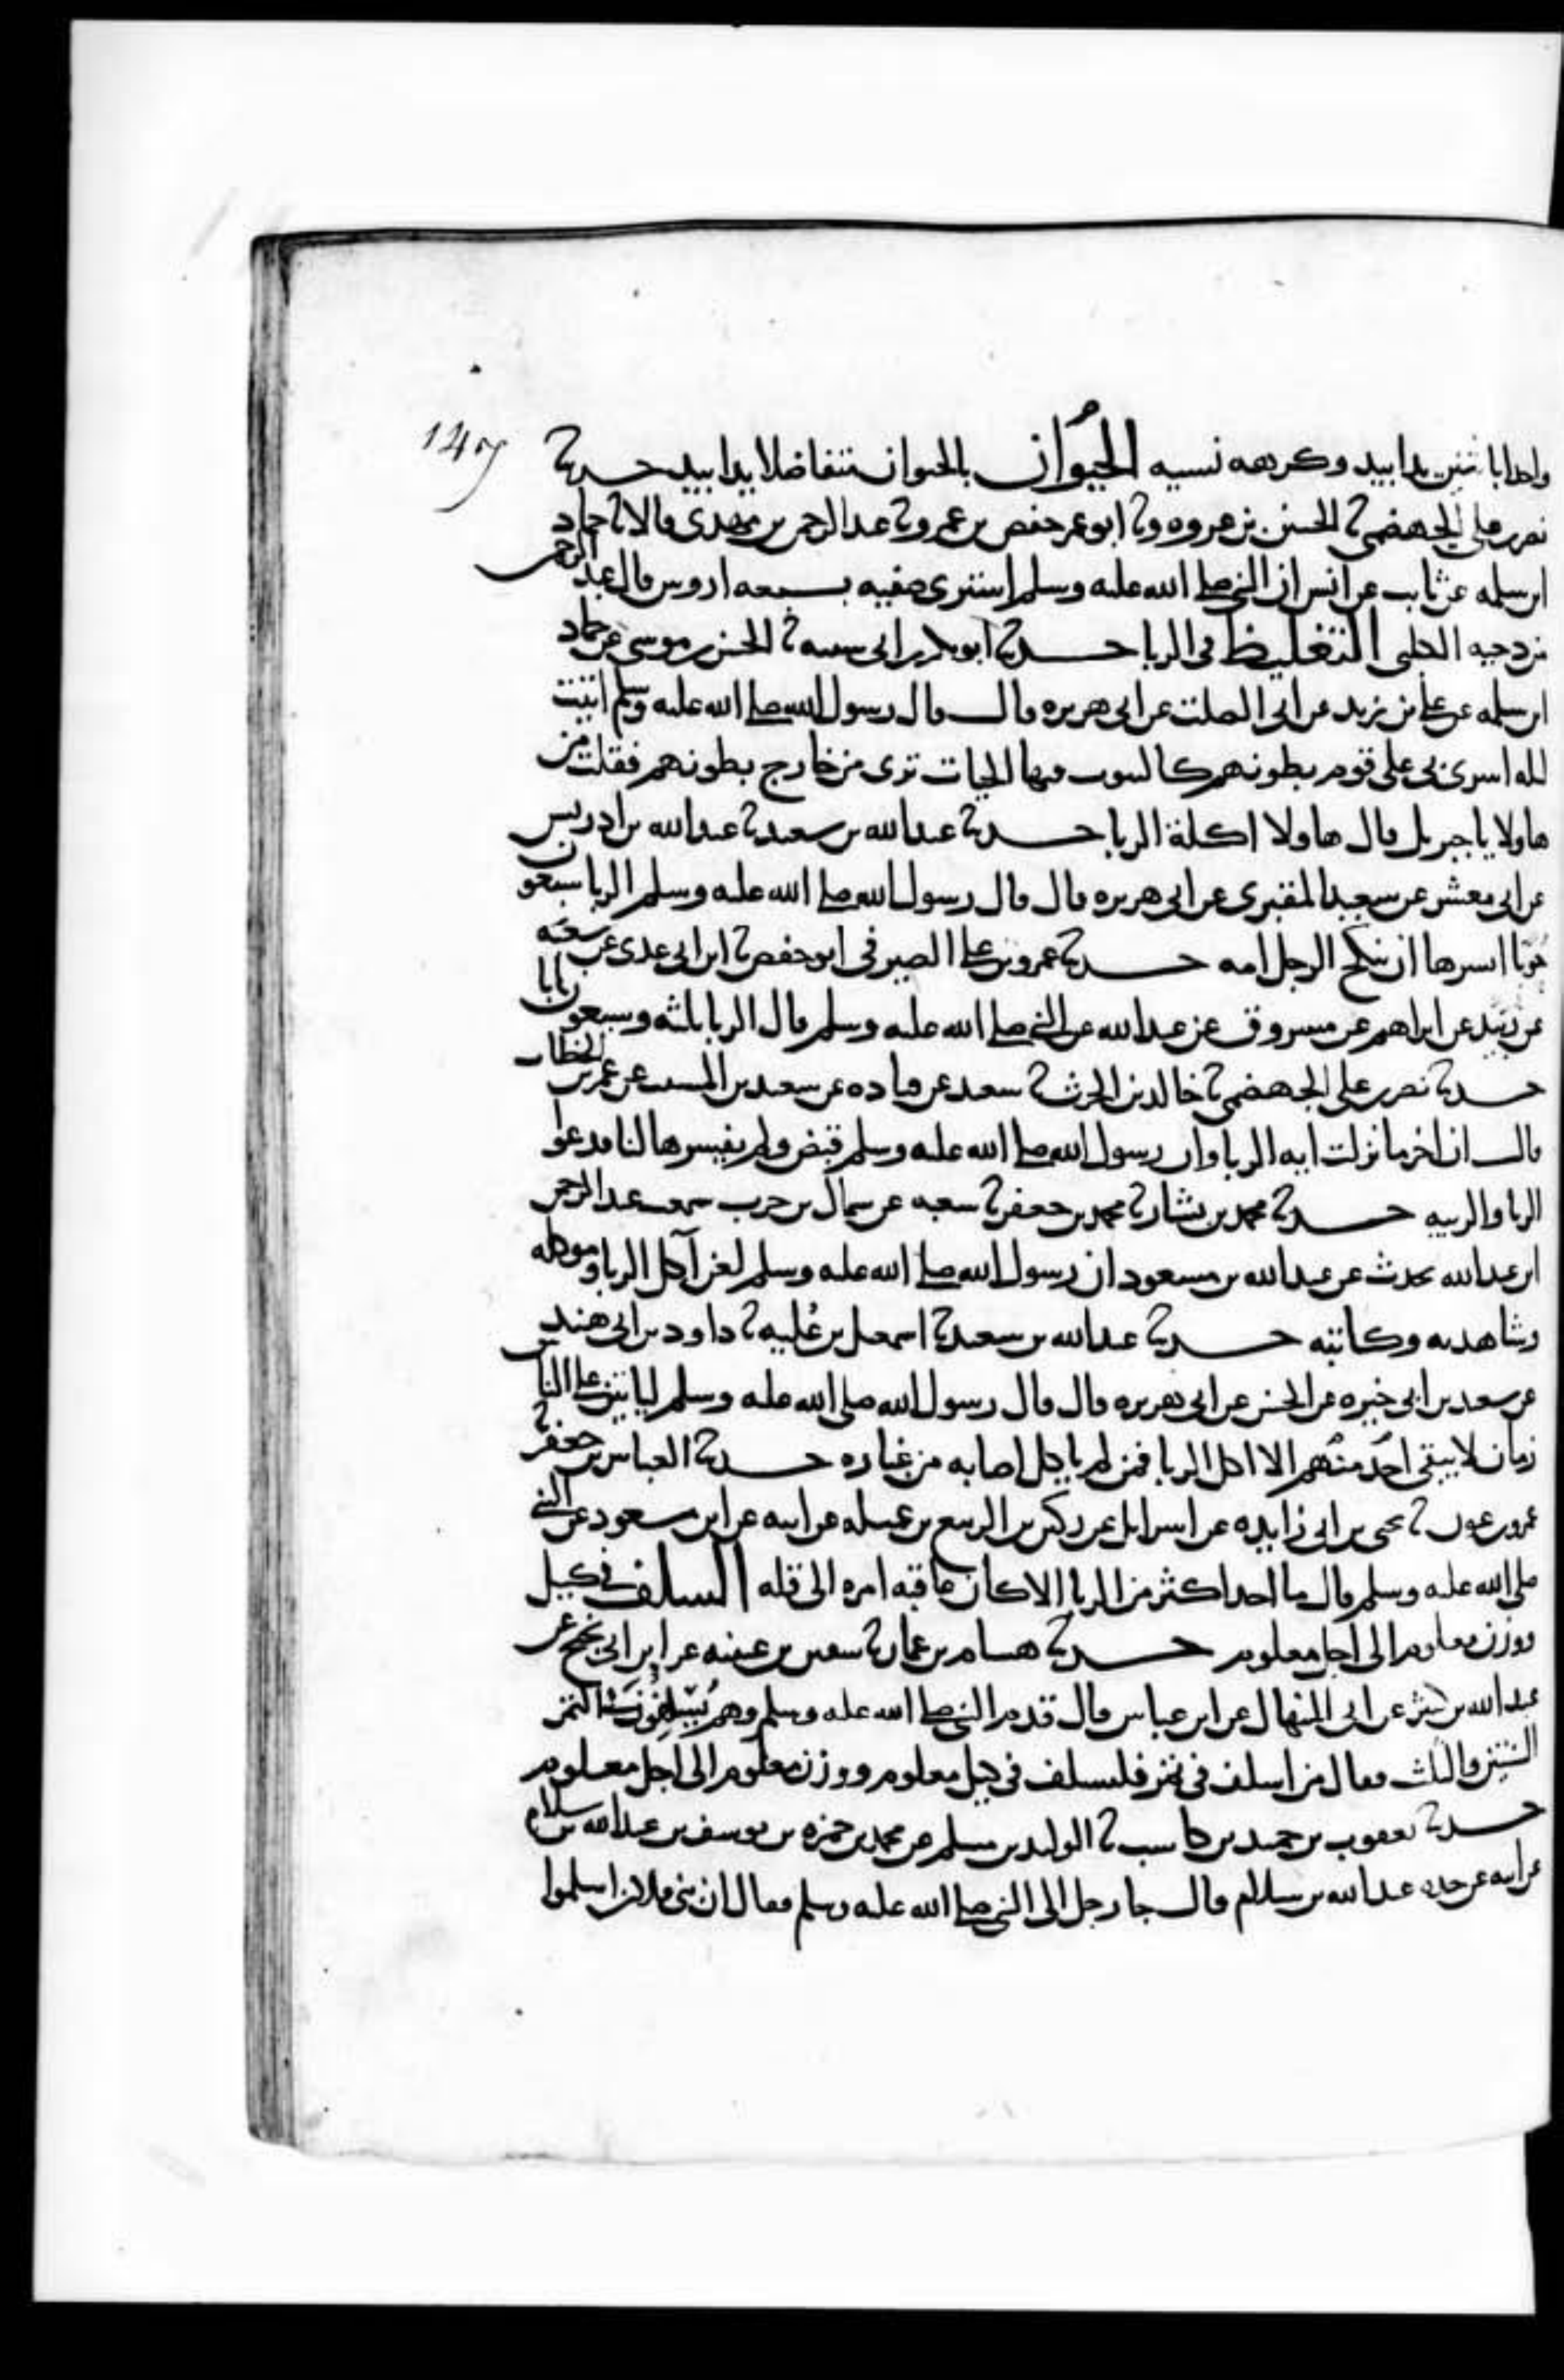 واحدا باثنين يدا بيد وكرهه نسيه الحيوان بالحيوان متفاضلا يدا بيد حدثنا
نصر بن علي الجهضمي ثنا الحسين بن عروه وثنا ابو عمر حفص بن عمرو ثنا عبد الرحمن بن مهدي قالا ثنا حماد
ابن سلمه عن ثابت عن انس ان النبي صلى الله عليه وسلم اشترى صفيه بسبعه اروس قال عبد الرحمن
من دحيه الكلبي التغليظ في الربا حدثنا ابو بكر بن ابي شيبه ثنا الحسن بن موسى عن حماد
ابن سلمه عن علي بن زيد عن ابي الصلت عن ابي هريره قال قال رسول الله صلى الله عليه وسلم اتيت
ليله اسري بي على قوم بطونهم كالبيوت فيها الحيات ترى من خارج بطونهم فقلت من
هاولا يا جبريل قال هاولا اكلة الربا حدثنا عبد الله بن سعيد ثنا عبد الله بن ادريس
عن ابي معشر عن سعيد المقبري عن ابي هريره قال قال رسول الله صلى الله عليه وسلم الربا سبعون
حوبا ايسرها ان ينكح الرجل امه حدثنا عمرو بن علي الصيرفي ابو حفص ثنا ابن ابي عدي عن شعبه
عن زبيد عن ابراهيم عن مسروق عن عبد الله عن النبي صلى الله عليه وسلم قال الربا ثلثه وسبعون بابا
حدثنا نصر بن علي الجهضمي ثنا خالد بن الحرث ثنا سعيد عن قتاده عن سعيد بن المسيب عن عمر بن الخطاب
قال ان اخر ما نزلت ايه الربا وان رسول الله صلى الله عليه وسلم قبض ولم يفسرها لنا فدعوا
الربا والريبه حدثنا محمد بن بشار ثنا محمد بن جعفر ثنا شعبه عن سماك بن حرب سمعت عبد الرحمن
ابن عبد الله يحدث عن عبد الله بن مسعود ان رسول الله صلى الله عليه وسلم لعن آكل الربا وموكله
وشاهديه وكاتبه حدثنا عبد الله بن سعيد ثنا اسمعيل بن عُليه ثنا داود بن ابي هند
عن سعيد بن ابي خيره عن الحسن عن ابي هريره قال قال رسول الله صلى الله عليه وسلم لياتين على الناس
زمان لا يبقى احد منهم الا اكل الربا فمن لم ياكل اصابه من غباره حدثنا العباس بن جعفر ثنا
عمرو بن عون ثنا يحيى بن ابي زايده عن اسرايل عن ركين بن الربيع بن عميله عن ابيه عن ابن مسعود عن النبي
صلى الله عليه وسلم قال ما احد اكثر من الربا الا كان عاقبه امره الى قله السلف في كيل
ووزن معلوم الى اجل معلوم حدثنا هشام بن عمار ثنا سفين بن عيينه عن ابن ابي نجيح عن
عبد الله بن كثير عن ابي المنهال عن ابن عباس قال قدم النبي صلى الله عليه وسلم وهم يُسْلِفُون في التمر
السنتين والثلث فقال من اسلف في تمر فليسلف في كيل معلوم ووزن معلوم الى اجل معلوم
حدثنا يعقوب بن حميد بن كاسب ثنا الوليد بن مسلم عن محمد بن حمزه بن يوسف بن عبد الله بن سلام
عن ابيه عن جده عبد الله بن سلام قال جا رجل الى النبي صلى الله عليه وسلم فقال ان بني فلان اسلموا